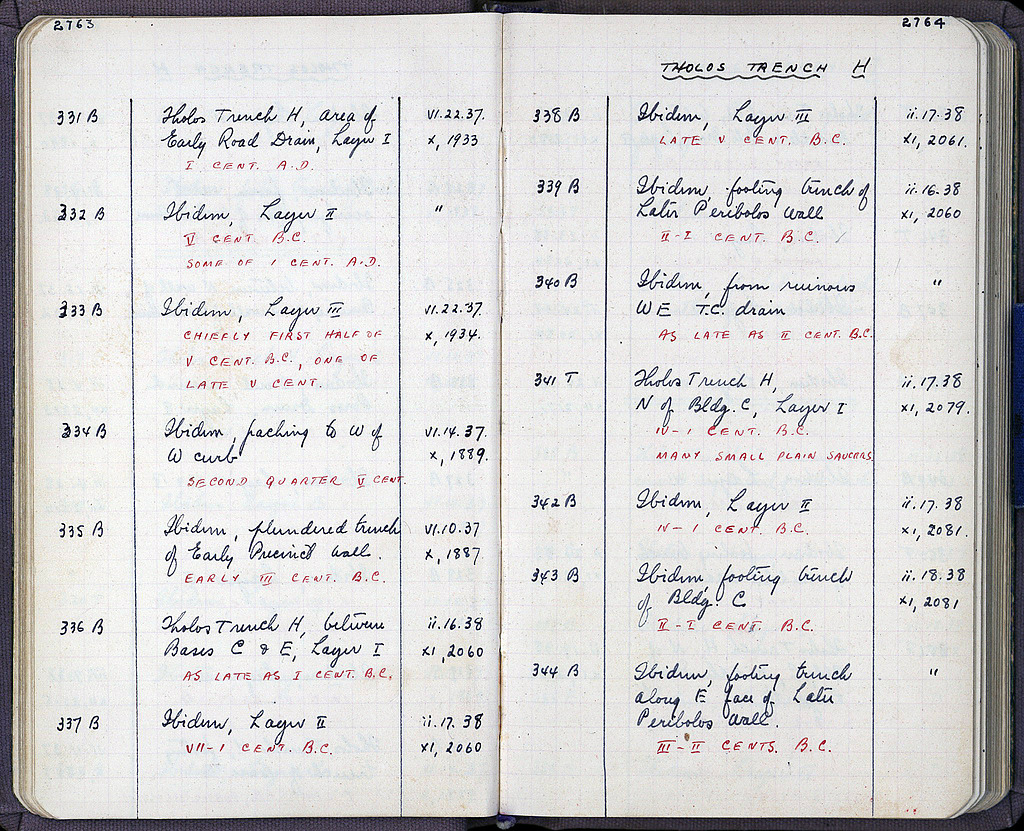 2763
331 B Tholos Trench H, area of VI.22.37.
Early Road Drain, Layer I X, 1933
I CENT. A.D.
332 B Ibidem, Layer II "
V CENT. B.C.
SOME OF I CENT. A.D.
333 B Ibidem, Layer III VI.22.37.
CHIEFLY FIRST HALF OF X, 1934.
V CENT. B.C., ONE OF
LATE V CENT.
334 B Ibidem, packing to W of VI.14.37.
W curb X, 1889.
SECOND QUARTER V CENT.
335 B Ibidem, plundered trench VI.10.37
of Early Precinct wall. X, 1887.
EARLY III CENT. B.C.
336 B Tholos Trench H, between ii.16.38
Bases C & E, Layer I XI, 2060
AS LATE AS I CENT. B.C.
337 B Ibidem, Layer II ii.17.38
VII-I CENT. B.C. XI, 2060
2764
THOLOS TRENCH H
338 B Ibidem, Layer III ii.17.38
LATE V CENT. B.C. XI, 2061.
339 B Ibidem, footing trench of ii.16.38
Later Peribolos Wall XI, 2060
II-I CENT. B.C.
340 B Ibidem, from ruinous "
W E T.C. drain
AS LATE AS II CENT. B.C.
341 T Tholos Trench H, ii.17.38
N of Bldg. C, Layer I XI, 2079.
IV-I CENT. B.C.
MANY SMALL PLAIN SAUCERS
342 B Ibidem, Layer II ii.17.38
IV-I CENT. B.C. XI, 2081.
343 B Ibidem, footing trench ii.18.38
of Bldg. C XI, 2081
II-I CENT. B.C.
344 B Ibidem, footing trench "
along E face of Later
Peribolos Wall.
III-II CENTS. B.C.